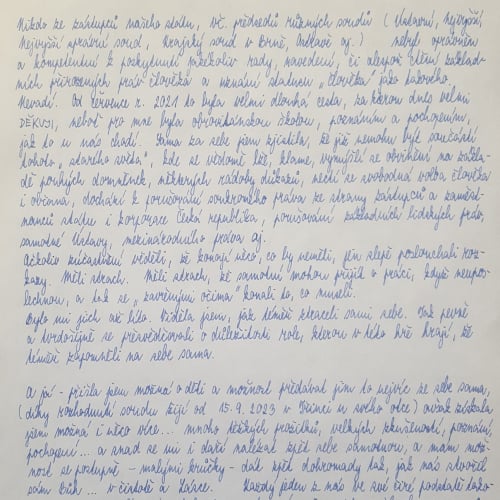 Nikdo ze zástupců našeho státu, vč. předsedů různých soudů (Ústavní, nejvyšší,
Nejvyšší správní soud, Krajský soud v Brně, Ostravě aj.) nebyl oprávněn
a kompetentní k poskytnutí jakékoliv rady, navedení, či alespoň ctění základ-
ních přirozených práv člověka a uznání statusu "člověka" jako takového
Nevadí. Od července r. 2021 to byla velmi dlouhá cesta, za kterou dnes velmi
DĚKUJI, neboť pro mne byla obrovitánskou školou, poznáním a pochopením,
jak to u nás chodí. Sama za sebe jsem zjistila, že již nemohu být součástí
tohoto "starého světa", kde se vědomě lže, klame, vymýšlí se obvinění na zákla-
dě pouhých domněnek, některých rádoby důkazů, nectí se svobodná volba člověka
i občana, dochází k porušování soukromého práva ze strany zástupců a zaměst-
nanců státu i korporace Česká republika, porušování základních lidských práv,
samotné Ústavy, mezinárodního práva aj.
Ačkoliv zúčastnění věděli, že konají něco, co by neměli, jen slepě poslouchali roz-
kazy. Měli strach. Měli strach, že samotní mohou přijít o práci, když neupo-
slechnou, a tak se "zavřenýma očima" konali to, co museli.
Bylo mi jich až líto. Viděla jsem, jak téměř ztraceli sami sebe. Tak pevně
a tvrdošíjně se přesvědčovali o důležitosti role, kterou v této hře hrají, že
téměř zapomněli na sebe sama.
A já - přišla jsem možná o děti a možnost předávat jim to nejvíc ze sebe sama,
(díky rozhodnutí soudu žijí od 15. 9. 2023 v u svého otce) avšak získala
jsem možná i něco více... mnoho těžkých prožitků, velkých zkušeností, poznání,
pochopení... a snad se mi i daří nalézat zpět sebe samotnou, a mám mož-
nost se postupně - malými krůčky - dát zpět dohromady tak, jak nás stvořil
sám Bůh... v čistotě a lásce. Každý jeden z nás ve své čiré podstatě